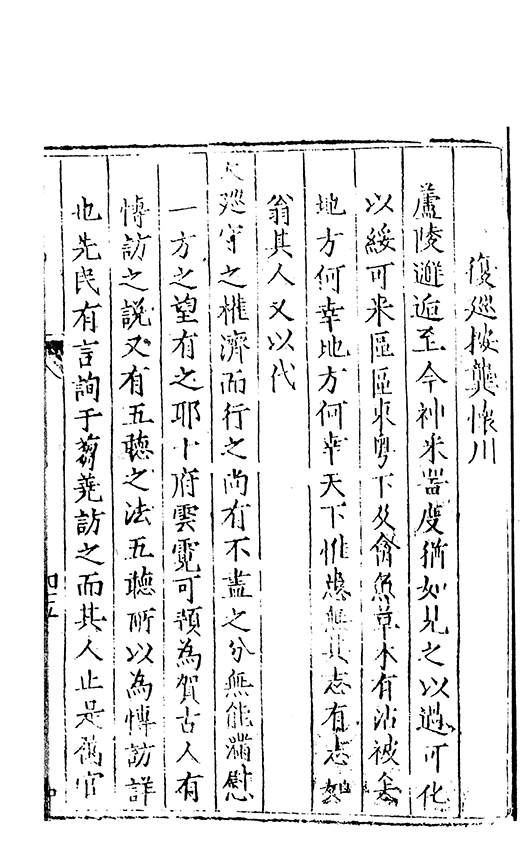 復廵按龔懷川
蘆陵邂逅至今神米噐度猶如見之以過可化
以綏可來區區東粤下及禽魚草木有沾被矣
地方何幸地方何幸天下惟患無其志有志如
翁其人又以代
天廵守之權濟而行之尚有不盡之分無能滿慰
一方之望有之耶十府雲霓可預為賀古人有
愽訪之說又有五聽之法五聽所以為愽訪詳
也先民有言詢于蒭蕘訪之而其人止是舊官
四五